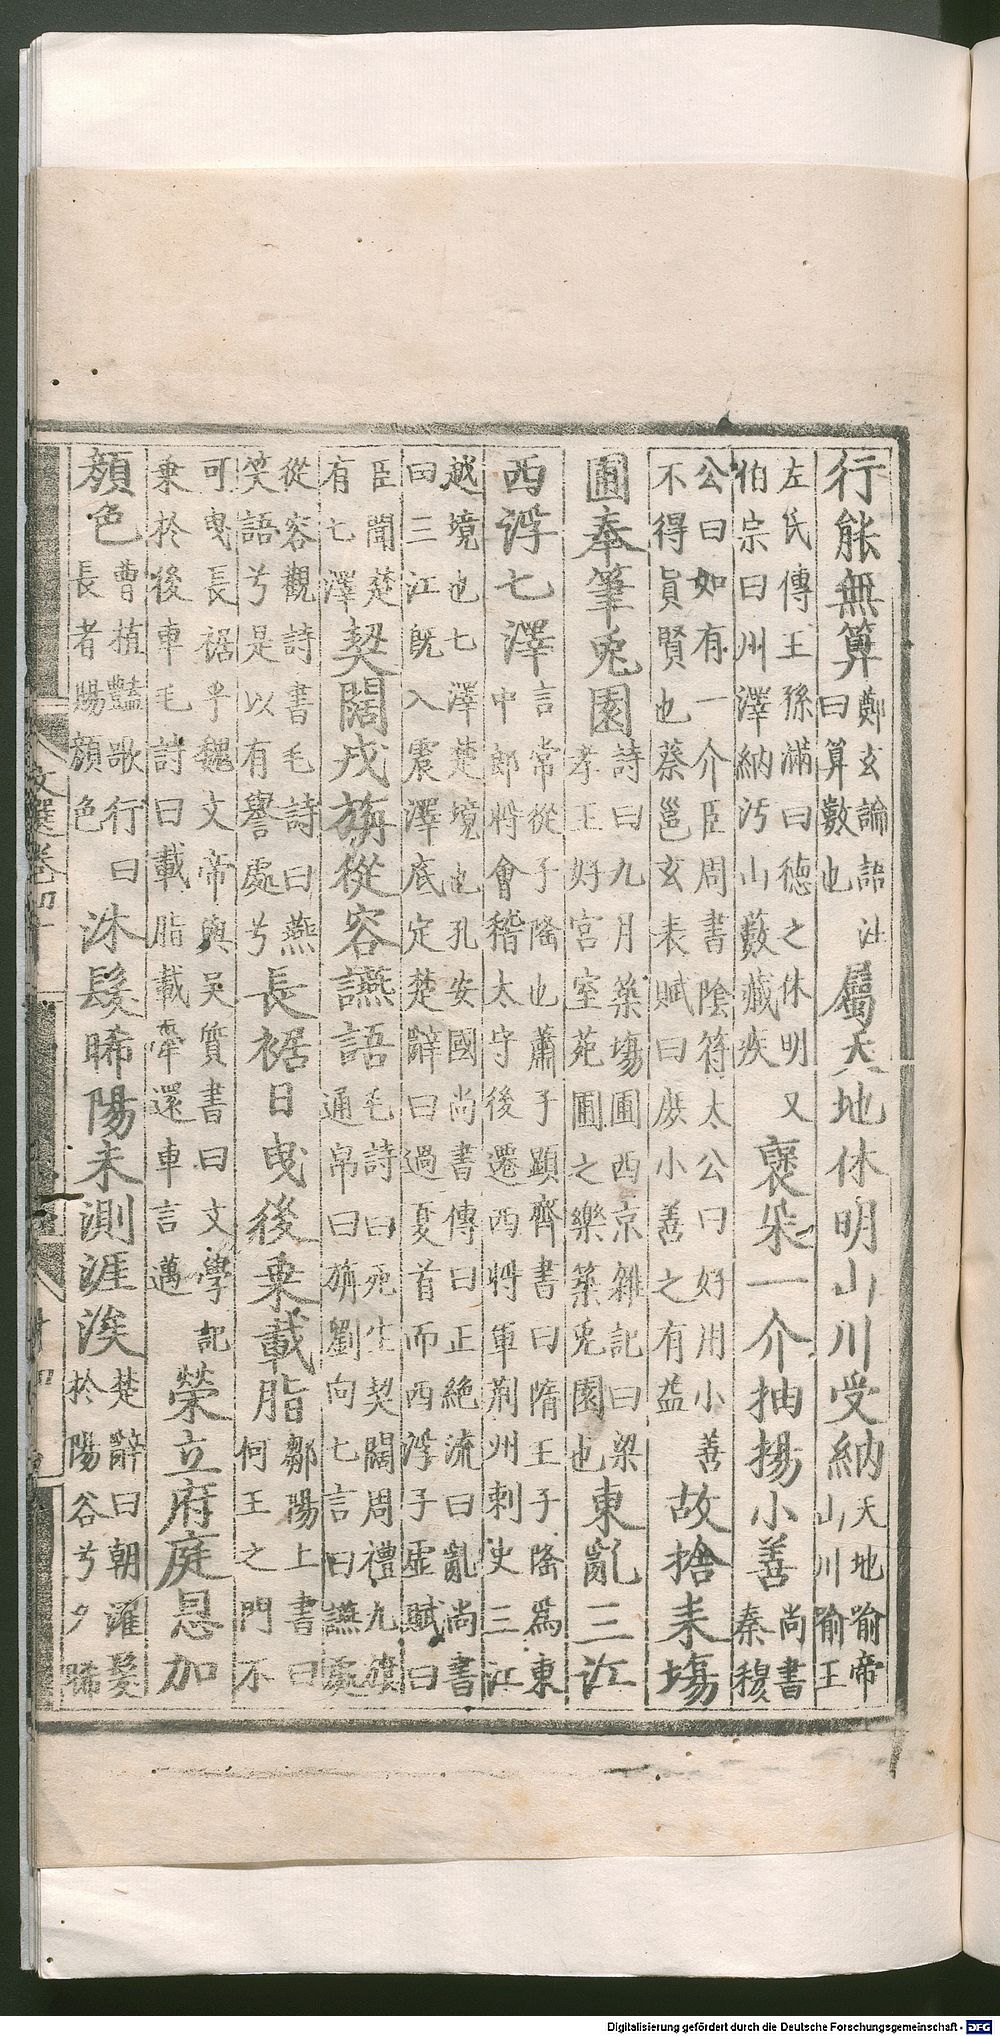 行能無算鄭玄論語注曰算數也屬天地休明山川受納天地喻帝山川喻王
左氏傳王孫滿曰德之休明又伯宗曰川澤納汙山藪藏疾褒采一介抽揚小善尚書秦穆
公曰如有一介臣周書陰符太公曰好用小善不得眞賢也蔡邕玄表賦曰庶小善之有益故捨耒塲
圃奉筆兎園詩曰九月築塲圃西京雜記曰梁孝王好宮室苑圃之樂築兎園也東亂三江
西浮七澤言常從子隆也蕭子顯齊書曰隋王子隆爲東中郎將會稽太守後遷西將軍荆州刺史三江
越境也七澤楚境也孔安國尚書傳曰正絶流曰亂尚書曰三江旣入震澤底定楚辭曰過夏首而西浮子虛賦曰
臣聞楚有七澤契闊戎旃從容讌語毛詩曰死生契闊周禮九旗通帛曰旃劉向七言曰讌處
從容觀詩書毛詩曰燕笑語兮是以有譽處兮長裾日曵後乗載脂鄒陽上書曰何王之門不
可曵長裾乎魏文帝與吳質書曰文學記乗於後車毛詩曰載脂載舝還車言邁榮立府庭恩加
顏色曹植豔歌行曰長者賜顏色沐髮晞陽未測涯涘楚辭曰朝濯髮於陽谷兮夕晞
文選卷四十
Digitalisierung gefördert durch die Deutsche Forschungsgemeinschaft - DFG